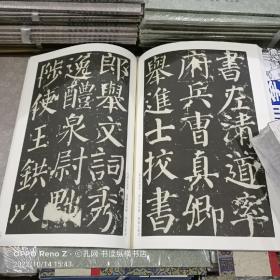 書左清道率
府兵曹真卿
舉進士校書
郎舉文詞秀
逸醴泉尉黜
陟使王鉷以
OPPO Reno Z
@孔网 书道纵横书店
2022/10/14 15:43